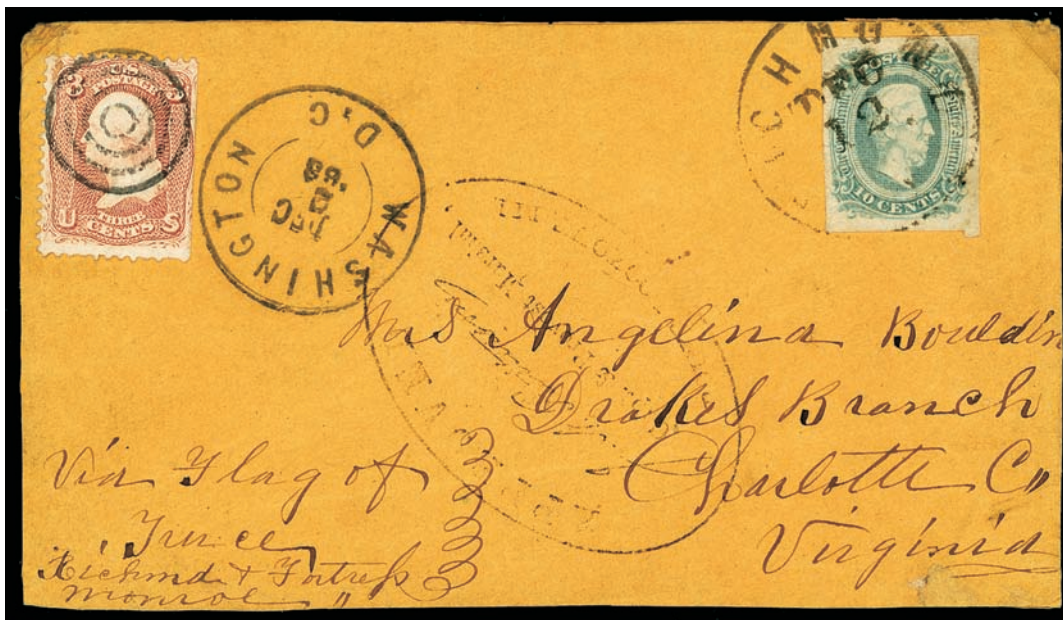 3 3
U.S.
POSTAGE
THREE
CENTS
U S
WASHINGTON
D.C
DEC
5
'63
RICHMOND
DEC
12
POSTAGE
10 CENTS
Mrs Angelina Bouldin
Drakes Branch
Charlotte Co"
Virginia
Via Flag of
Truce
Richmd & Fortress
Monroe "